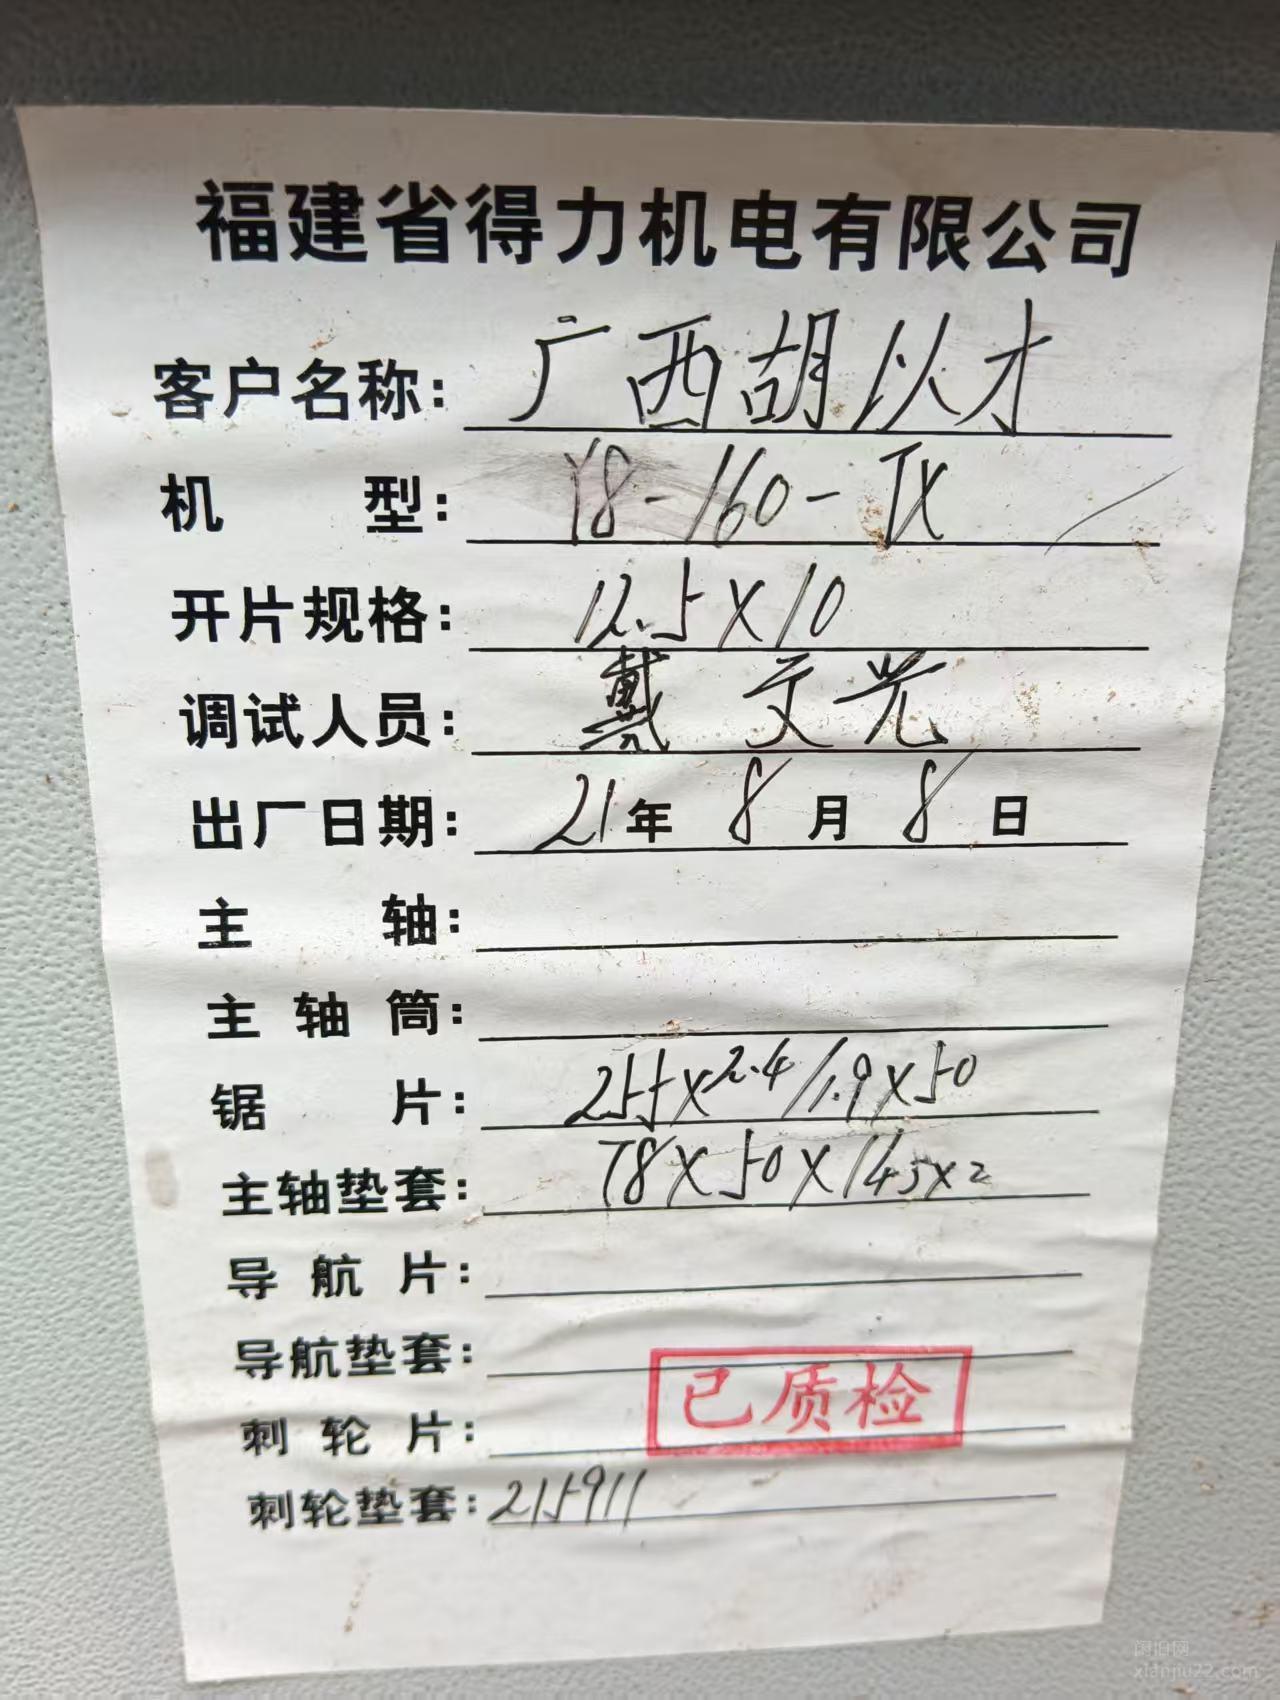 福建省得力机电有限公司
客户名称: 广西胡以才
机型: Y8-160-TX
开片规格: 12.5X10
调试人员: 戴文光
出厂日期: 21年8月8日
主轴:
主轴筒:
锯片: 255X2.4/1.9X50
主轴垫套: 78X50X145X2
导航片:
导航垫套:
已质检
刺轮片:
刺轮垫套: 215911
闲旧网
xianjiu22.com